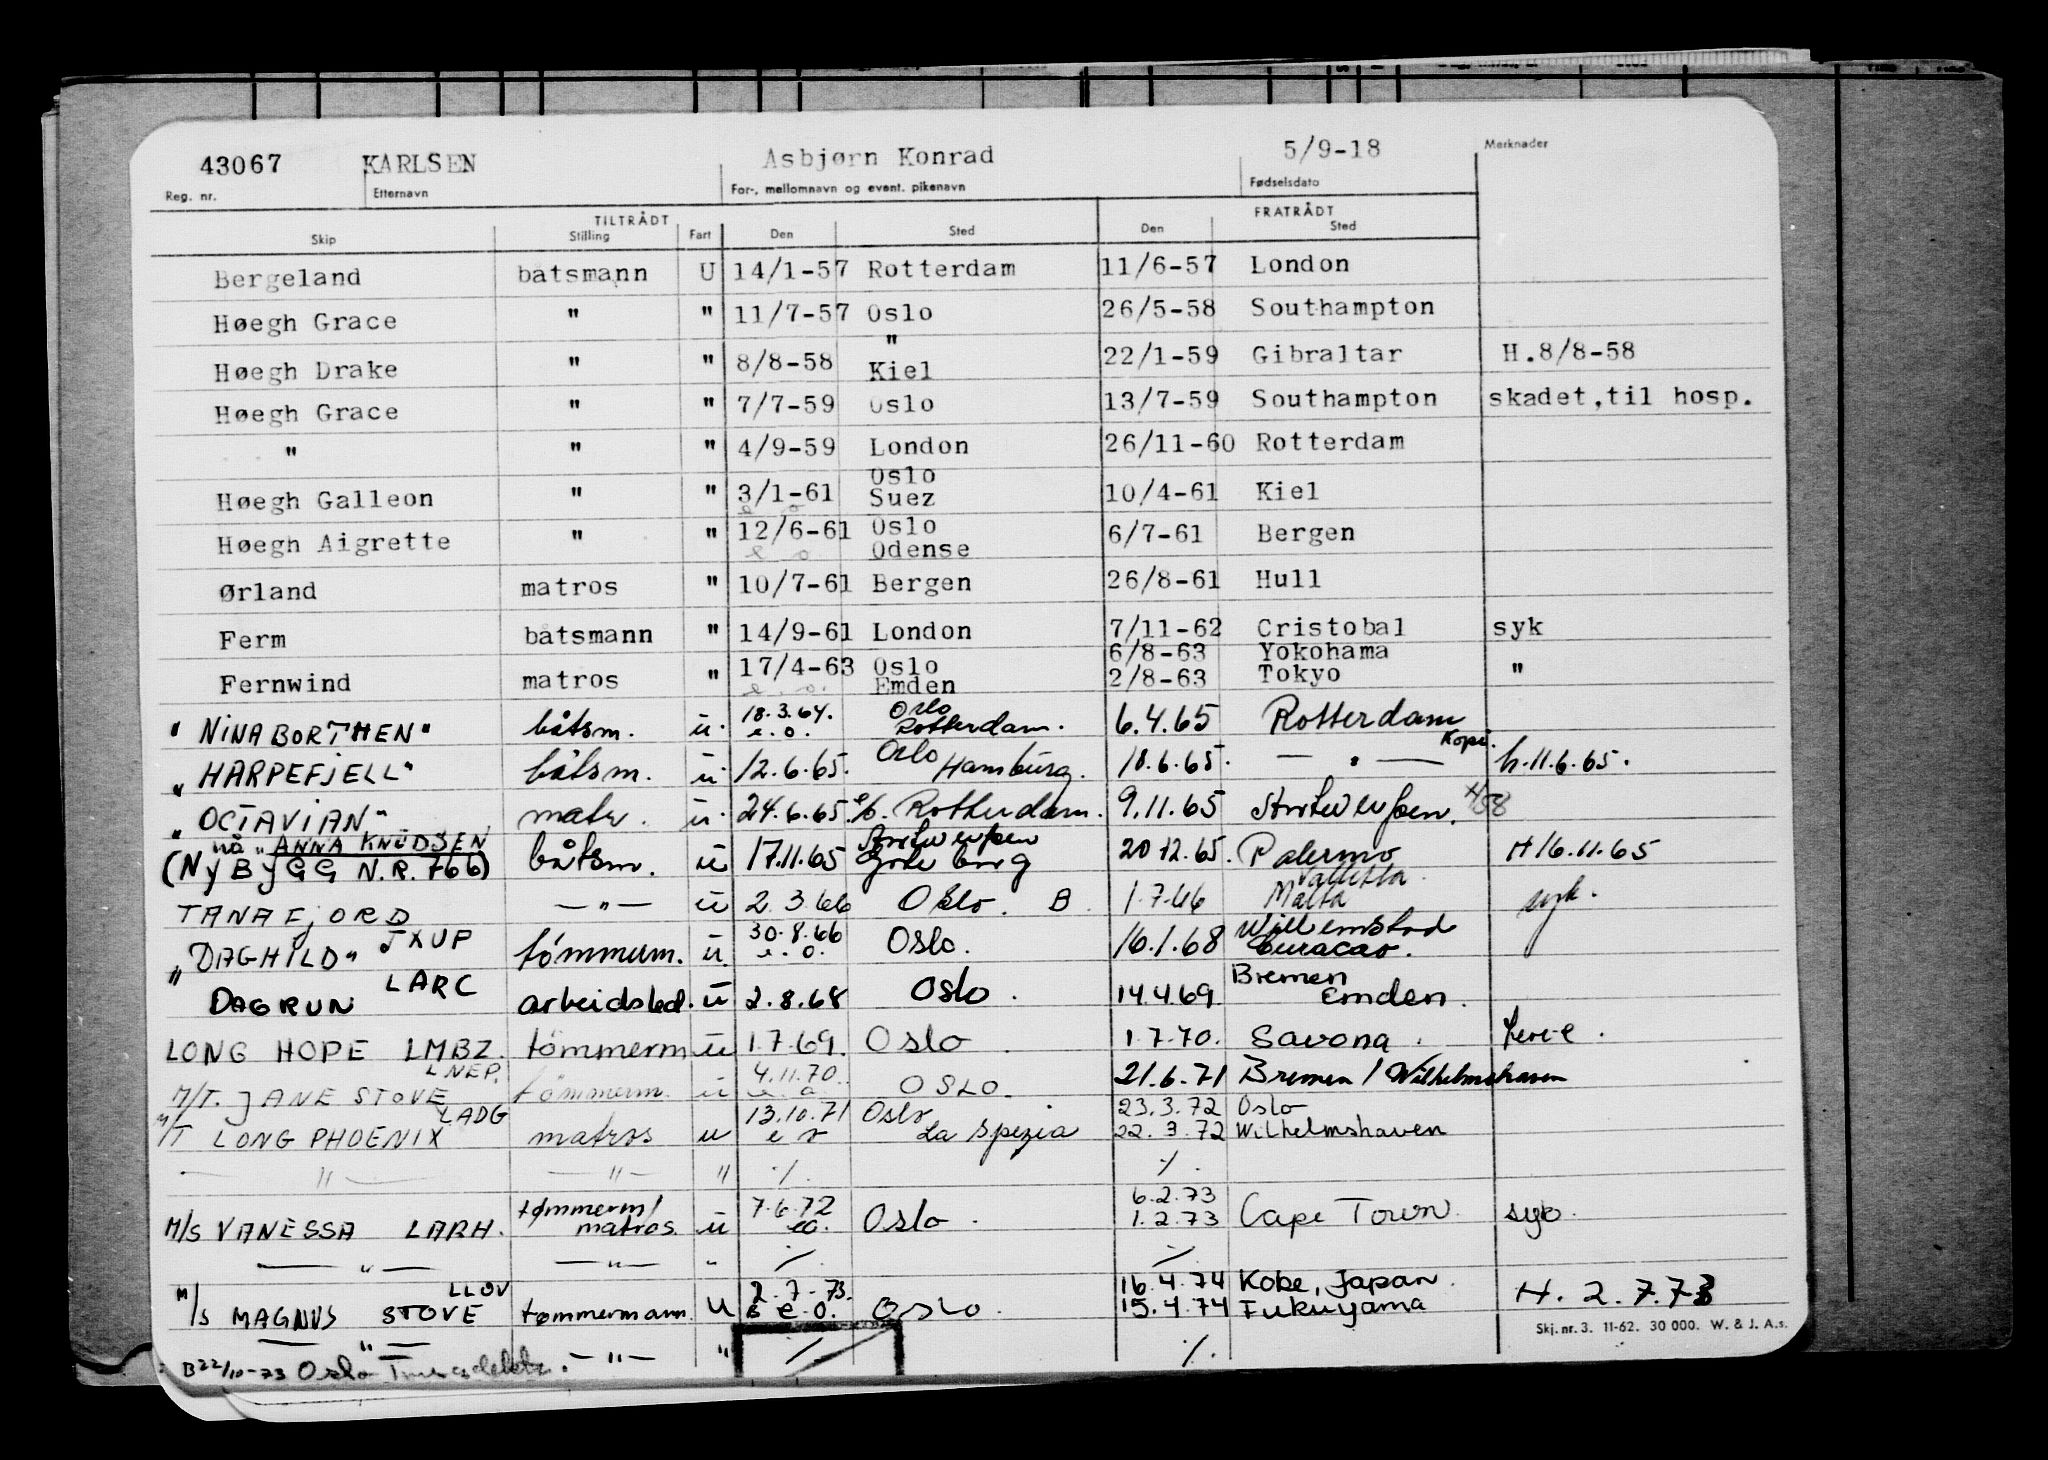 43067 KARLSEN Asbjørn Konrad 5/9-18 Merknader
Reg. nr. Etternavn For-, mellomnavn og event. pikenavn Fødselsdato
TILTRÅDT FRATRÅDT
Skip Stilling Fart Den Sted Den Sted
Bergeland båtsmann U 14/1-57 Rotterdam 11/6-57 London
Høegh Grace " " 11/7-57 Oslo 26/5-58 Southampton
"
Høegh Drake " " 8/8-58 Kiel 22/1-59 Gibraltar H.8/8-58
Høegh Grace " " 7/7-59 Oslo 13/7-59 Southampton skadet,til hosp.
" " " 4/9-59 London 26/11-60 Rotterdam
Oslo
Høegh Galleon " " 3/1-61 Suez 10/4-61 Kiel
e o
Høegh Aigrette " " 12/6-61 Oslo 6/7-61 Bergen
e o Odense
Ørland matros " 10/7-61 Bergen 26/8-61 Hull
Ferm båtsmann " 14/9-61 London 7/11-62 Cristobal syk
17/4-63 Oslo 6/8-63 Yokohama
Fernwind matros " e.o. Emden 2/8-63 Tokyo "
18.3.64. Oslo
"NINABORTHEN" båtsm. u. e.o. Rotterdam. 6.4.65 Rotterdam
Kopi.
"HARPEFJELL" båtsm. u 12.6.65. Oslo Hamburg. 18.6.65. — " — h.11.6.65.
"OCTAVIAN" matr. u. 24.6.65. Rotterdam. 9.11.65 Antwerpen.
nå "ANNA KNUDSEN Antwerpen
(NYBYGG N.R. 766) båtsm. u 17.11.65 Gøteborg 20.12.65. Palermo H16.11.65
Valletta
TANAFJORD —"— u 2.3.66 Oslo. B 1.7.66 Malta syk.
JXUP 30.8.66 Willemstad
"DAGHILD" tömmerm. u. e.o. Oslo. 16.1.68 Curacao.
LARC Bremen
DAGRUN arbeidsled. u 2.8.68 Oslo. 14.4.69. Emden.
LONG HOPE LMBZ. tömmerm u 1.7.69. Oslo. 1.7.70. Savona.
LNEP. 4.11.70.
M/T. JANE STOVE tömmerm. u e.o OSLO. 21.6.71 Bremen / Wilhelmshaven
LADG 13.10.71 Oslo 23.3.72 Oslo
M/T LONG PHOENIX matros u e o La Spezia 22.3.72 Wilhelmshaven
— " — — " — " ./. ./.
tømmerm/ 7.6.72 6.2.73
M/S VANESSA LARH. matros. u eo. Oslo. 1.2.73 Cape Town. syk.
— " — — " — " ./. ./.
LLOV 2.7-73. 16.4.74 Kobe, Japan.
M/S MAGNUS STOVE tømmermann. U e.o. Oslo. 15.4.74 Fukuyama H. 2.7.73
Skj. nr. 3. 11-62. 30 000. W. & J. A.s.
— " — — " — " ./. ./.
B22/10-73 Oslo